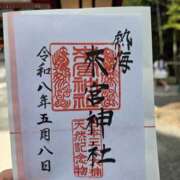 熱海
來宮神社
天然記念物
令和八年五月八日